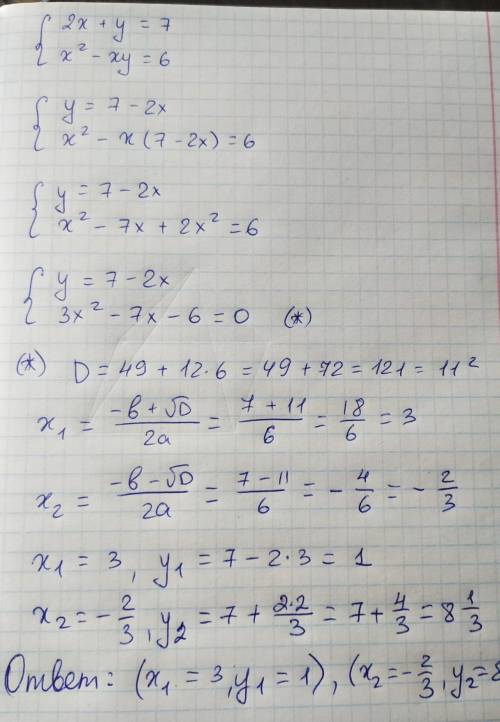 { 2x + y = 7
x² - xy = 6
{ y = 7 - 2x
x² - x(7 - 2x) = 6
{ y = 7 - 2x
x² - 7x + 2x² = 6
{ y = 7 - 2x
3x² - 7x - 6 = 0 (*)
(*) D = 49 + 12·6 = 49 + 72 = 121 = 11²
x₁ = (-b + √D)/2a = (7 + 11)/6 = 18/6 = 3
x₂ = (-b - √D)/2a = (7 - 11)/6 = - 4/6 = - 2/3
x₁ = 3, y₁ = 7 - 2·3 = 1
x₂ = - 2/3, y₂ = 7 + 2·2/3 = 7 + 4/3 = 8 1/3
Ответ: (x₁ = 3, y₁ = 1), (x₂ = - 2/3, y₂ = 8